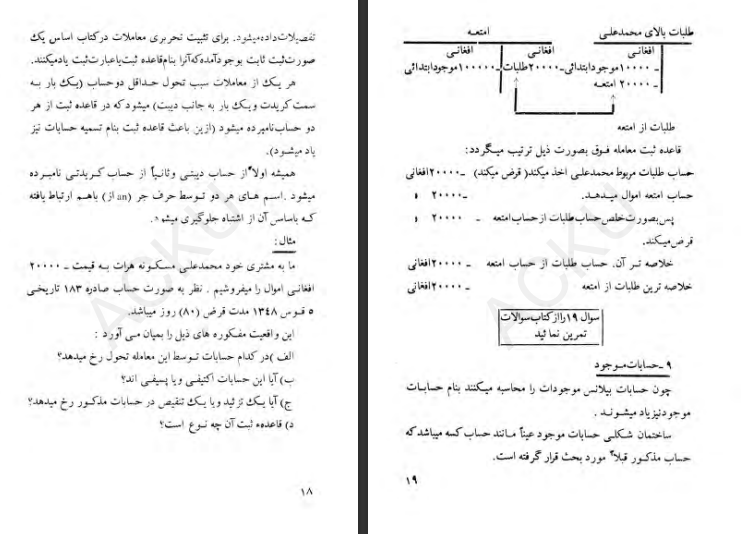 تفصیلات داده میشود. برای تثبیت تحریری معاملات در کتاب اساس یک
صورت ثبت ثابت بوجود آمده که آنرا بنام قاعده ثبت یا عبارت ثبت یاد میکنند.
هر یک از معاملات سبب تحول حداقل دو حساب (یک بار به
سمت کریدت و یک بار به جانب دیبت) میشود که در قاعده ثبت از هر
دو حساب نامبرده میشود (ازین باعث قاعده ثبت بنام تسمیه حسابات نیز
یاد میشود).
همیشه اولاً از حساب دیبتی و ثانیاً از حساب کریدتی نامبرده
میشود . اسم های هر دو توسط حرف جر (an از) باهم ارتباط یافته
که باساس آن از اشتباه جلوگیری میشود.
مثال :
ما به مشتری خود محمدعلی مسکونه هرات به قیمت ـ ۲۰۰۰۰
افغانی اموال را میفروشیم . نظر به صورت حساب صادره ۱۸۳ تاریخی
۵ قوس ۱۳۴۸ مدت قرض (۸۰) روز میباشد.
این واقعیت مفکوره های ذیل را بمیان می آورد :
الف )در کدام حسابات توسط این معامله تحول رخ میدهد؟
ب) آیا این حسابات اکتیفی و یا پسیفی اند؟
ج) آیا یک تزئید و یا یک تنقیص در حسابات مذکور رخ میدهد؟
د) قاعدهٔ ثبت آن چه نوع است؟
۱۸
طلبات بالای محمدعلی
امتعه
افغانی افغانی افغانی
ـ ۱۰۰۰۰ موجود ابتدائی ـ ۲۰۰۰۰ طلبات ـ ۱۰۰۰۰۰ موجود ابتدائی
ـ ۲۰۰۰۰ امتعه
طلبات از امتعه
قاعده ثبت معامله فوق بصورت ذیل ترتیب میگردد:
حساب طلبات مربوط محمدعلی اخذ میکند( قرض میکند) ـ ۲۰۰۰۰ افغانی
حساب امتعه اموال میدهد. ـ ۲۰۰۰۰ »
پس بصورت خلص حساب طلبات از حساب امتعه ـ ۲۰۰۰۰ »
قرض میکند.
خلاصه تر آن. حساب طلبات از حساب امتعه ـ ۲۰۰۰۰ افغانی
خلاصه ترین طلبات از امتعه ـ ۲۰۰۰۰ افغانی
سوال ۱۹ را از کتاب سوالات
تمرین نمائید
۹ ـ حسابات موجود
چون حسابات بیلانس موجودات را محاسبه میکنند بنام حسابات
موجود نیز یاد میشوند .
ساختمان شکلی حسابات موجود عیناً مانند حساب کسه میباشد که
حساب مذکور قبلاً مورد بحث قرار گرفته است.
۱۹
ACKU
ACKU